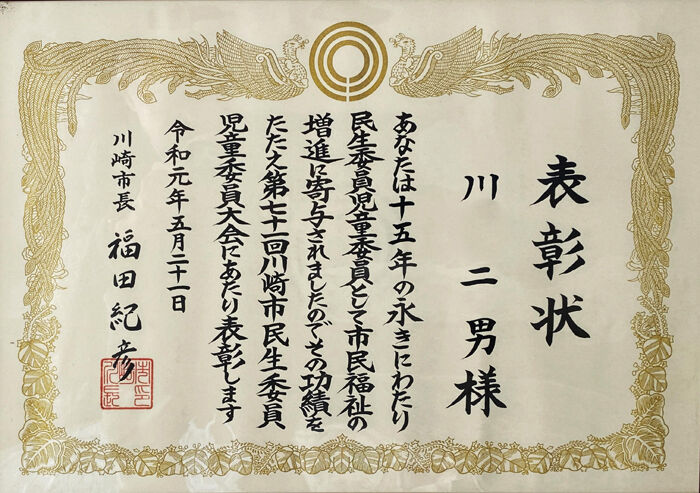 表彰状
川二男様
あなたは十五年の永きにわたり
民生委員児童委員として市民福祉の
増進に寄与されましたのでその功績を
たたえ第七十一回川崎市民生委員
児童委員大会にあたり表彰します
令和元年五月二十一日
川崎市長 福田紀彦